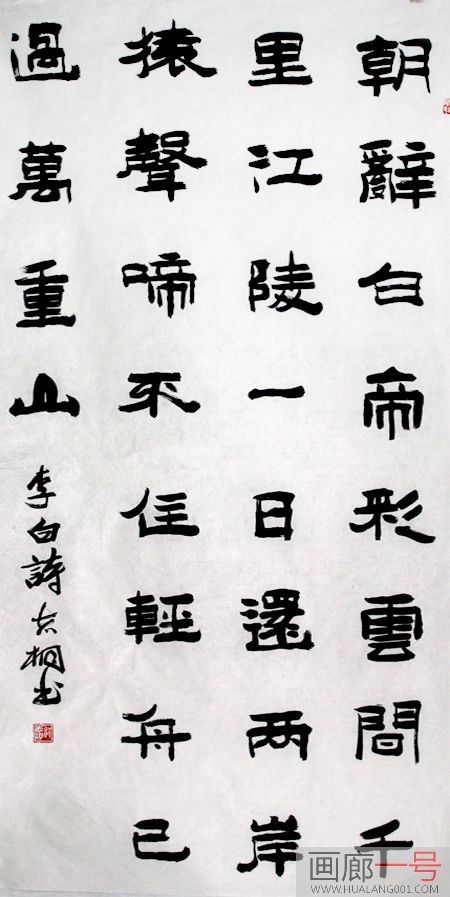 朝辭白帝彩雲間千
里江陵一日還两岸
猿聲啼不住輕舟已
過萬重山
李白詩志桐书
画廊一号
WWW.HUALANG001.COM